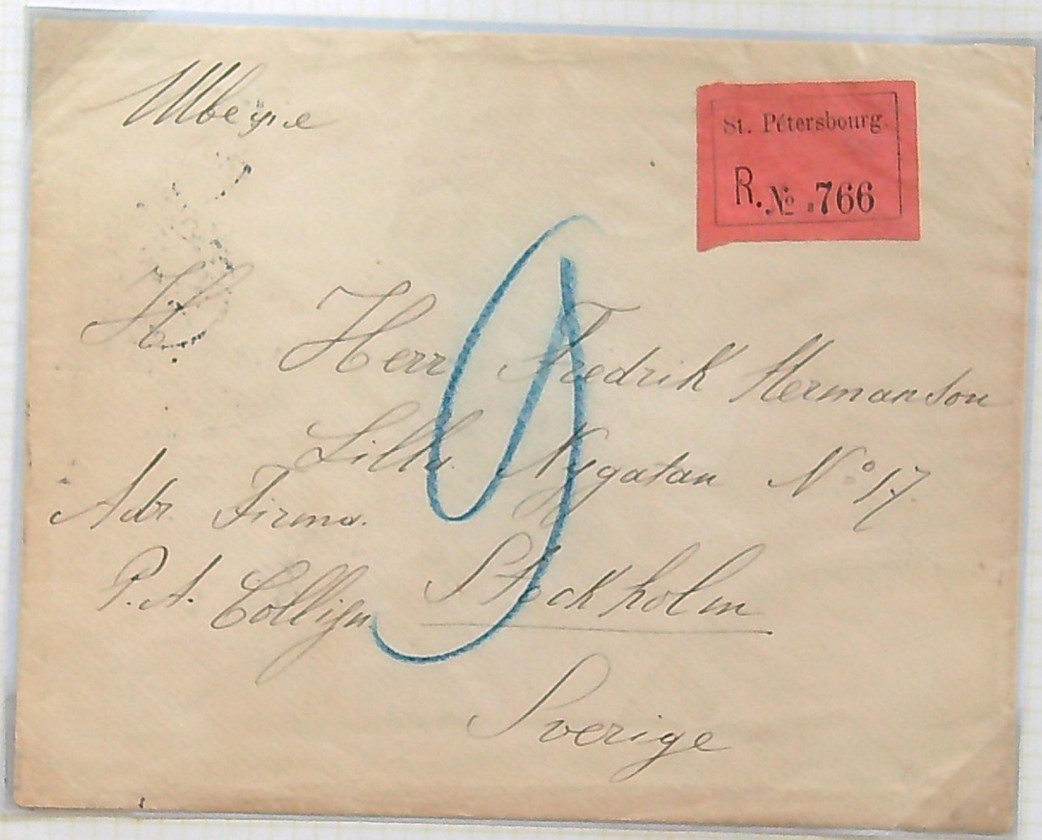 Швецiя
St. Pétersbourg
R. № 766
H
Herr Fredrik Hermanson
Lilla Nygatan No 17.
Adr. Firma.
P. A. Collijn
Stockholm
Sverige
9